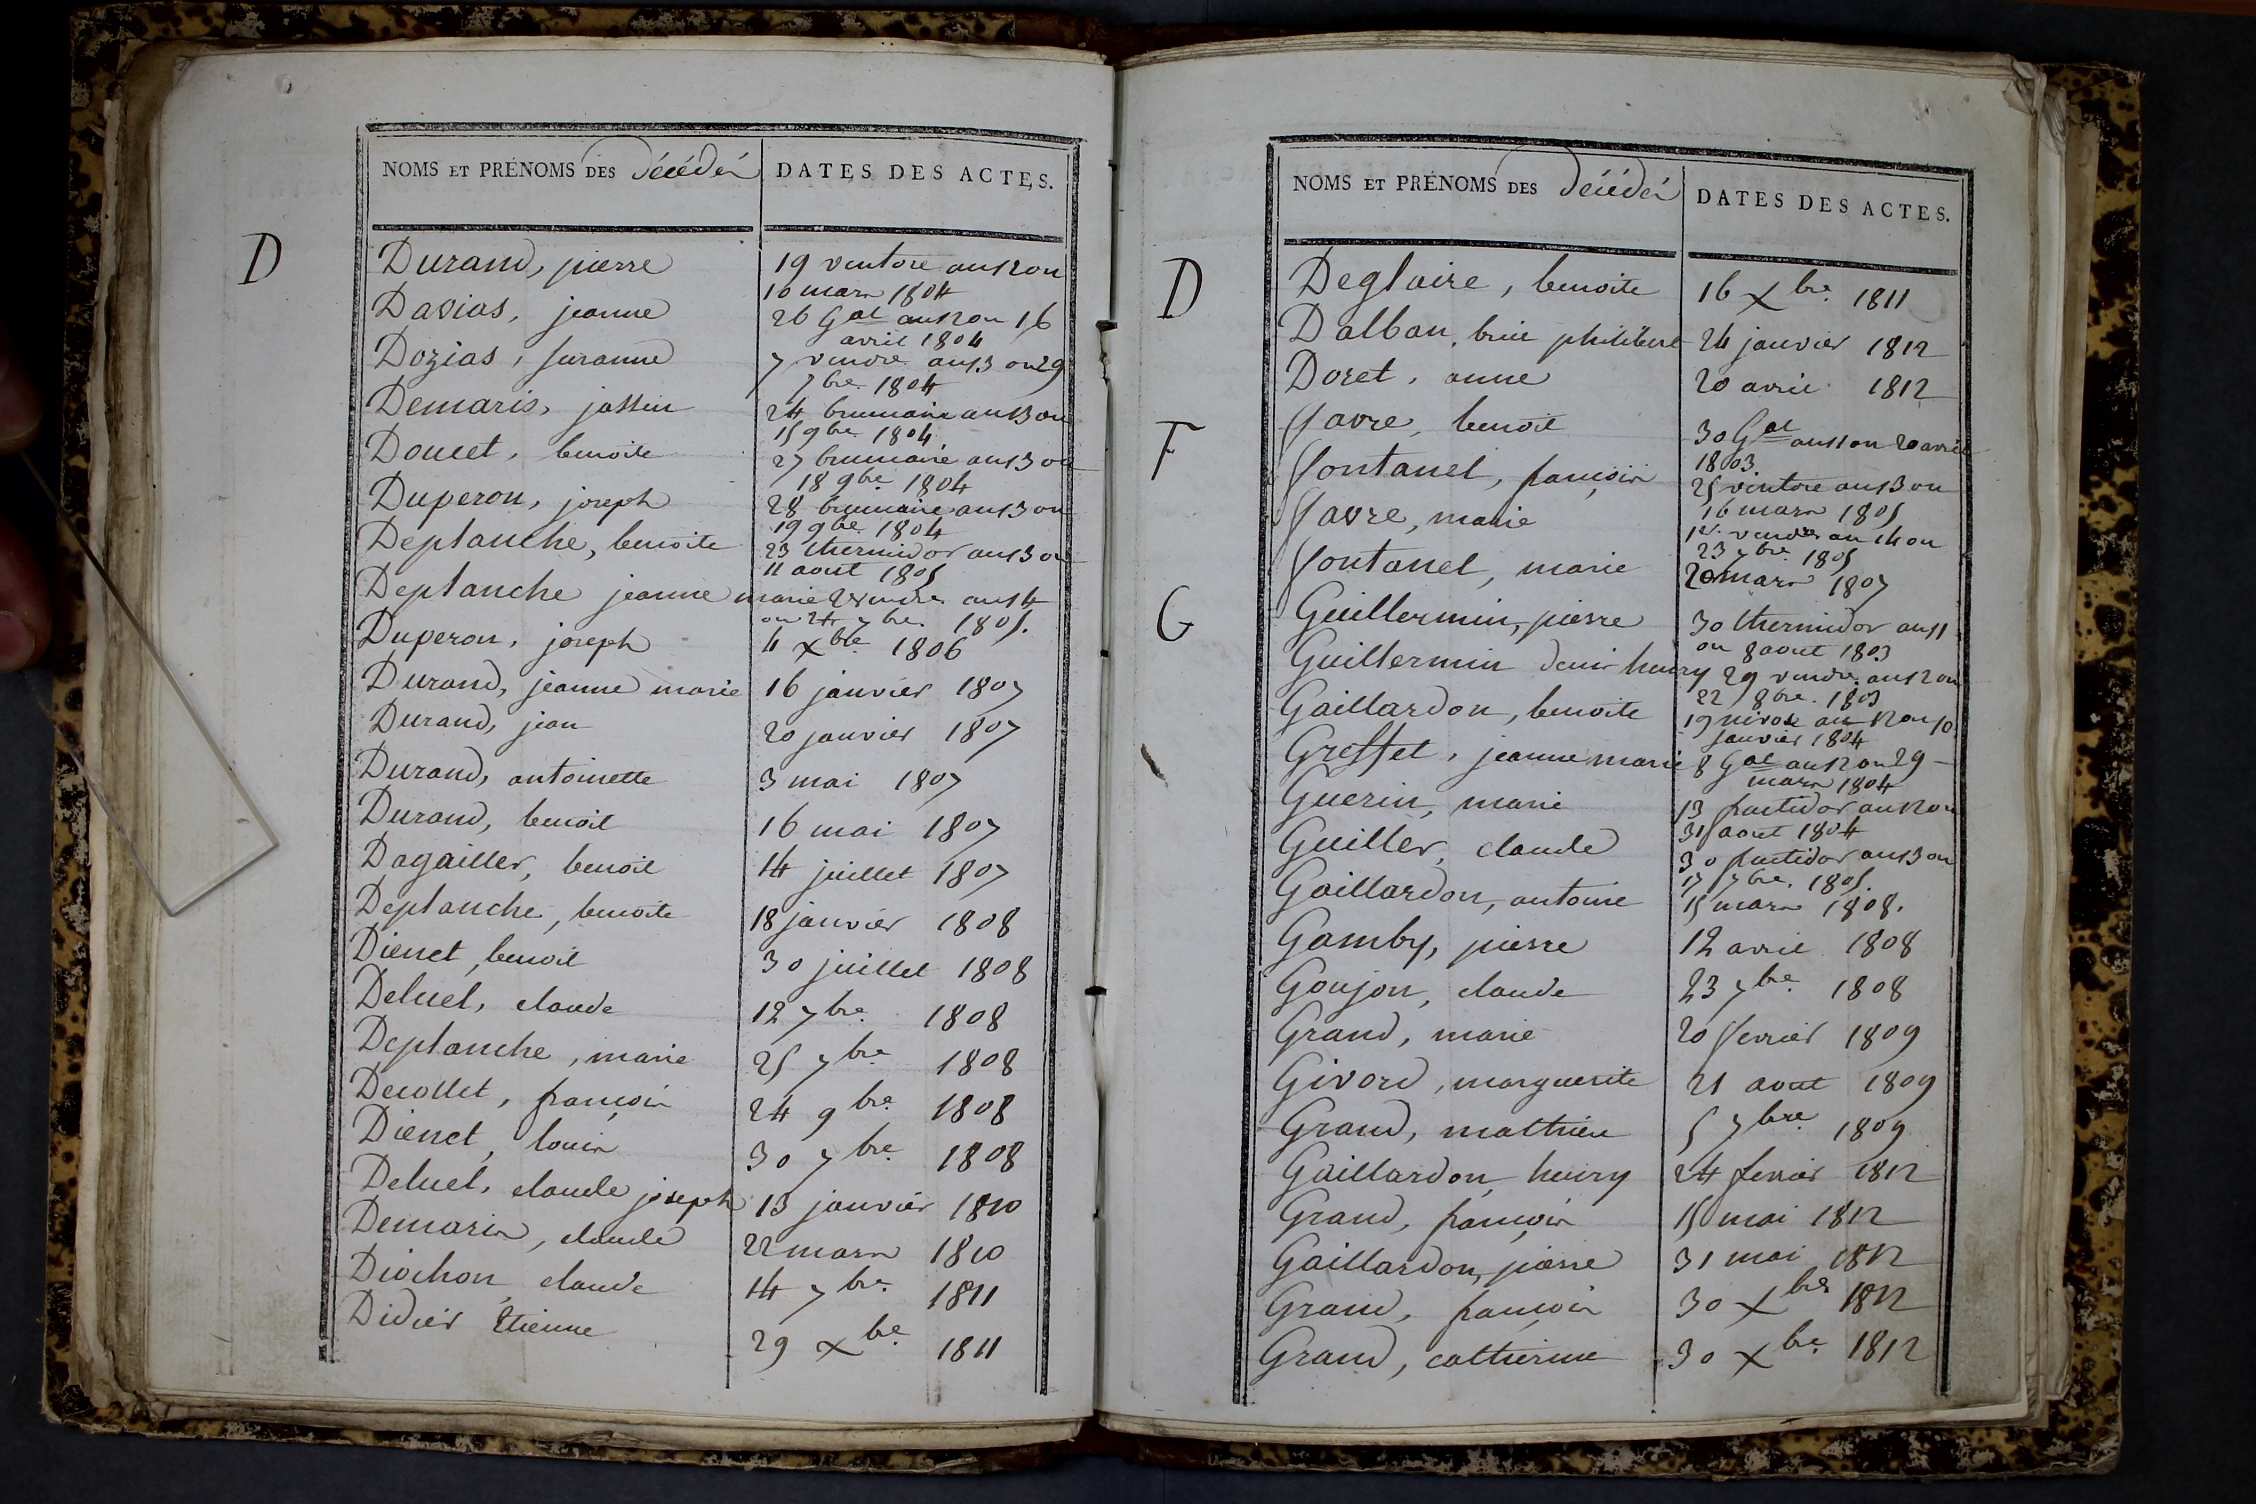 NOMS ET PRÉNOMS DES décédés DATES DES ACTES.
D
Durand, pierre 19 ventose an 12 ou
10 mars 1804
Davias, jeanne 26 Gal an 12 ou 16
avril 1804
Dozias, suzanne 7 vendre an 13 ou 29
7bre 1804
Demaris, 24 brumaire an 13 ou
15 9bre 1804
Doucet, benoite 27 brumaire an 13 ou
18 9bre 1804
Duperon, joseph 28 brumaire an 13 ou
19 9bre 1804
Deplanche, benoite 23 thermidor an 13 ou
11 aout 1805
Deplanche jeanne marie 2 vendre an 14
ou 24 7bre 1805.
Duperon, joseph 4 Xbre 1806
Durand, jeanne marie 16 janvier 1807
Durand, jean 20 janvier 1807
Durand, antoinette 3 mai 1807
Durand, benoit 16 mai 1807
Dagailler, benoit 14 juillet 1807
Deplanche, benoite 18 janvier 1808
Dienet, benoit 30 juillet 1808
Deluel, claude 12 7bre 1808
Deplanche, marie 25 7bre 1808
Decollet, françois 24 9bre 1808
Dienet, louis 30 7bre 1808
Deluel, claude joseph 13 janvier 1810
Demaris, claude 22 mars 1810
Diochon, claude 14 7bre 1811
Didier Etienne 29 Xbre 1811
NOMS ET PRÉNOMS DES décédés DATES DES ACTES.
D
Degloire, benoite 16 Xbre 1811
Dalban, philibert 24 janvier 1812
Doret, anne 20 avril 1812
F
favre, benoit 30 Gal an 11 ou 20 avril
1803
fontanel, françois 25 ventose an 13 ou
16 mars 1805
favre, marie 1er vendre an 14 ou
23 7bre 1805
fontanel, marie 20 mars 1807
G
Guillermin, pierre 30 thermidor an 11
ou 8 aout 1803
Guillermin denis henry 29 vendre an 12 ou
22 8bre 1803
Gaillardon, benoite 19 nivose an 12 ou 10
janvier 1804
Greffet, jeanne marie 8 Gal an 12 ou 29
mars 1804
Guerin, marie 13 fructidor an 12 ou
31 aout 1804
Guiller, claude 30 fructidor an 13 ou
17 7bre 1805.
Gaillardon, antoine 15 mars 1808.
Gamby, pierre 12 avril 1808
Goujon, claude 23 7bre 1808
Grand, marie 20 fevrier 1809
Givord, marguerite 21 aout 1809
Grand, mathieu 5 7bre 1809
Gaillardon, henry 24 fevrier 1812
Grand, françois 15 mai 1812
Gaillardon, pierre 31 mai 1812
Grand, françois 30 Xbre 1812
Grand, catherine 30 Xbre 1812